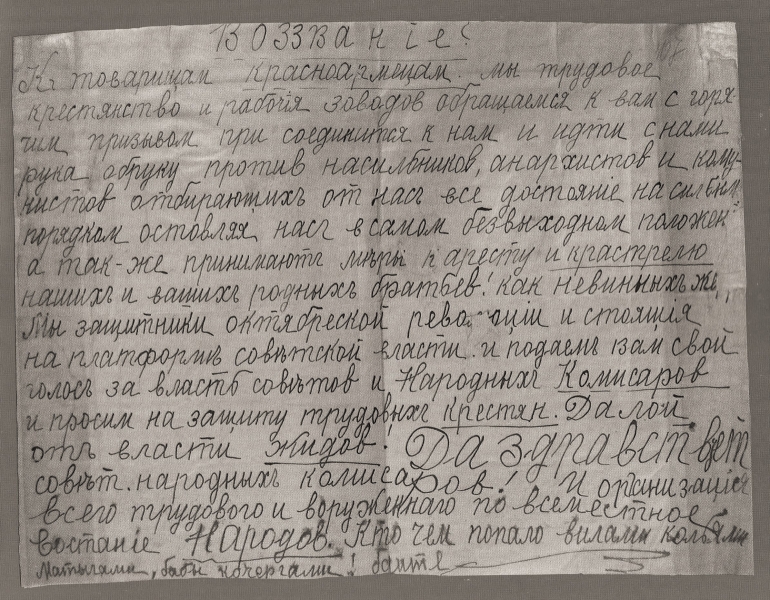 Воззваніе!
К товарищам красноармецам. мы трудовое
крестянство и рабочія зоводов обращаемся к вам с горя
чим призывом при соединится к нам и идти с нами
рука обруку против насильников, анархистов и кому-
нистов отбирающихъ от насъ все достояніе насильным
порядком оставляя насъ в самом безвыходном положен
а так-же принимаютъ мѣры к аресту и крастрелю
нашихъ и вашихъ родныхъ братьев! как невинныхъ
Мы защитники октябреской революціи и стоящія
на платформѣ совѣтской власти. и подаемъ вам свой
голосъ за власть совѣтов и Народныхъ Комисаров
и просим на защиту трудовыхъ крестян. Далой
отъ власти жидов. Да здравствует
совѣт. народныхъ комисаров! И организація
всего трудового и воруженнаго по всеместное
востаніе Народов. Кто чем попало вилами кольями
бабы кочергами!